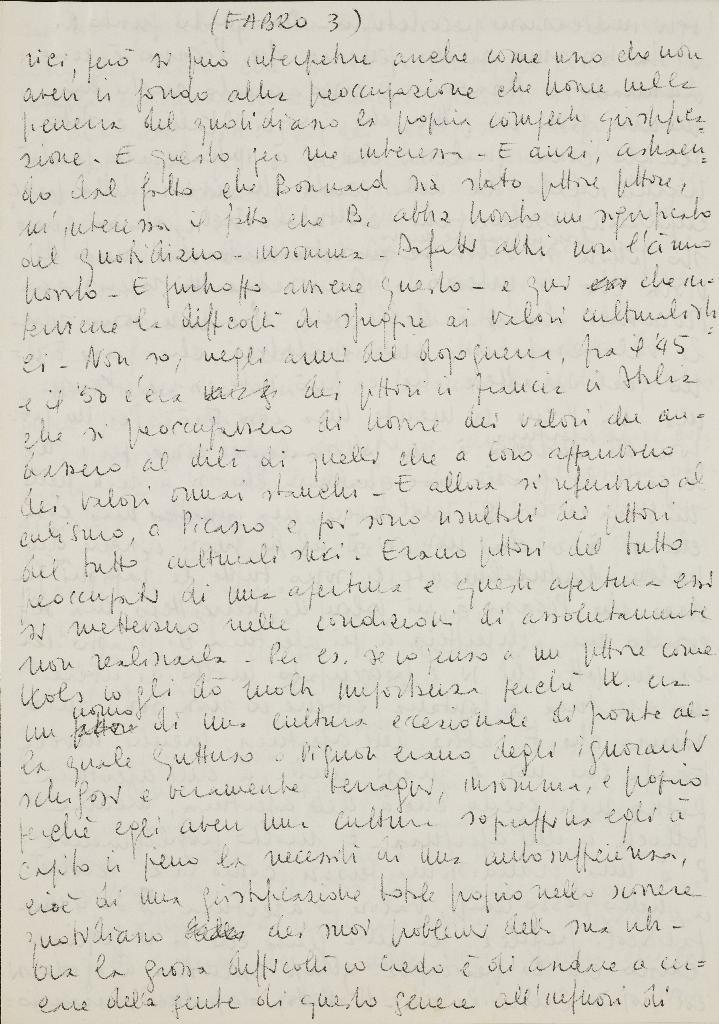 (FABRO 3)
rici, però si può interpetrare anche come uno che non
aveva in fondo altra preoccupazione che trovare nella
del quotidiano la propria completa giustifica=
zione - E questo per me interessa - E anzi, astraen=
do dal fatto che Bonnard sia stato pittore pittore,
m'interessa il fatto che B. abbia trovato un significato
del quotidiano - insomma - Difatti altri non l'anno
trovato - E purtroppo avviene questo - e qui che in=
terviene la difficoltà di sfuggire ai valori culturalisti=
ci - Non so, negli anni del dopoguerra, fra il '45
e il '50 c'era dei pittori in Francia in Italia
che si preoccupavano di trovare dei valori che an=
dassero al di là di quelli che a loro apparivano
dei valori ormai stanchi - E allora si riferivano al
cubismo, a Picasso e poi sono risultati dei pittori
del tutto culturalistici. Erano pittori del tutto
preoccupati di una apertura e questa apertura essi
si mettevano nelle condizioni di assolutamente
non realizzarla - Per es. se io penso a un pittore come
Wols io gli dò molta importanza perchè W. era
un uomo di una cultura eccezionale di fronte al=
la quale Guttuso o Pignon erano degli ignoranti
schifosi e veramente beceri, insomma, e proprio
perchè egli aveva una cultura sopraffina egli à
capito in pieno la necessità di una autosufficienza,
cioè di una giustificazione totale proprio nello scorrere
quotidiano dei suoi problemi della sua vita -
Ora la grossa difficoltà io credo è di andare a cer=
care della gente di questo genere all'infuori di